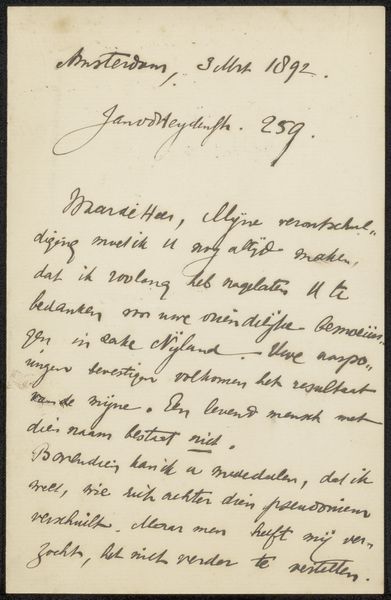 Amsterdam, 3 Mrt 1892.
Jan v d Heydenstr. 259.
Waarde Heer, Mijne verontschul„
diging moet ik U nog altijd maken,
dat ik zoolang heb nagelaten U te
bedanken voor uwe vriendelijke bemoeiïn„
gen in zake Nijland. Uwe naspo„
ringen bevestigen volkomen het resultaat
van de mijne. Een levend mensch met
dien naam bestaat niet.
Bovendien kan ik u mededelen, dat ik
weet, wie zich achter dien pseudoniem
verschuilt. Maar men heeft mij ver„
zocht, het niet verder te vertellen.